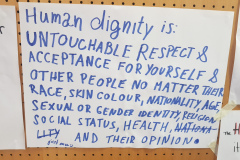 Human dignity is:
UNTOUCHABLE RESPECT &
ACCEPTANCE FOR YOURSELF &
OTHER PEOPLE NO MATTER THEIR
RACE, SKIN COLOUR, NATIONALITY, AGE,
SEXUAL OR GENDER IDENTITY, RELIGION
SOCIAL STATUS, HEALTH, NATIONA-
LITY AND THEIR OPINION.